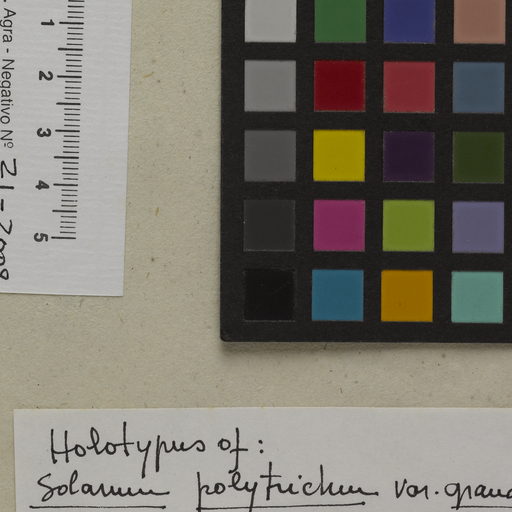 . Agra - Negativo Nº 21-2008
1
2
3
4
5
Holotypus of:
Solanum polytrichum var. grand